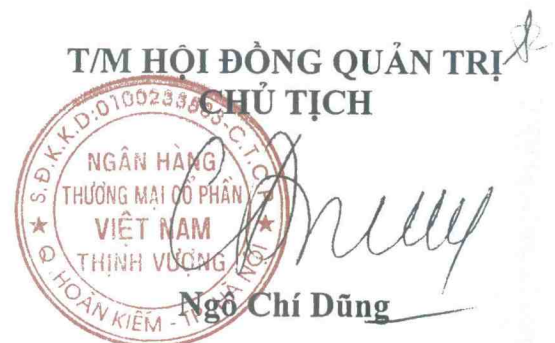 T/M HỘI ĐỒNG QUẢN TRỊ
CHỦ TỊCH
S.Đ.K.K.D:0100233583-C.T.C.P
NGÂN HÀNG
THƯƠNG MẠI CỔ PHẦN
VIỆT NAM
THỊNH VƯỢNG
Q.HOÀN KIẾM - TP.HÀ NỘI
Ngô Chí Dũng